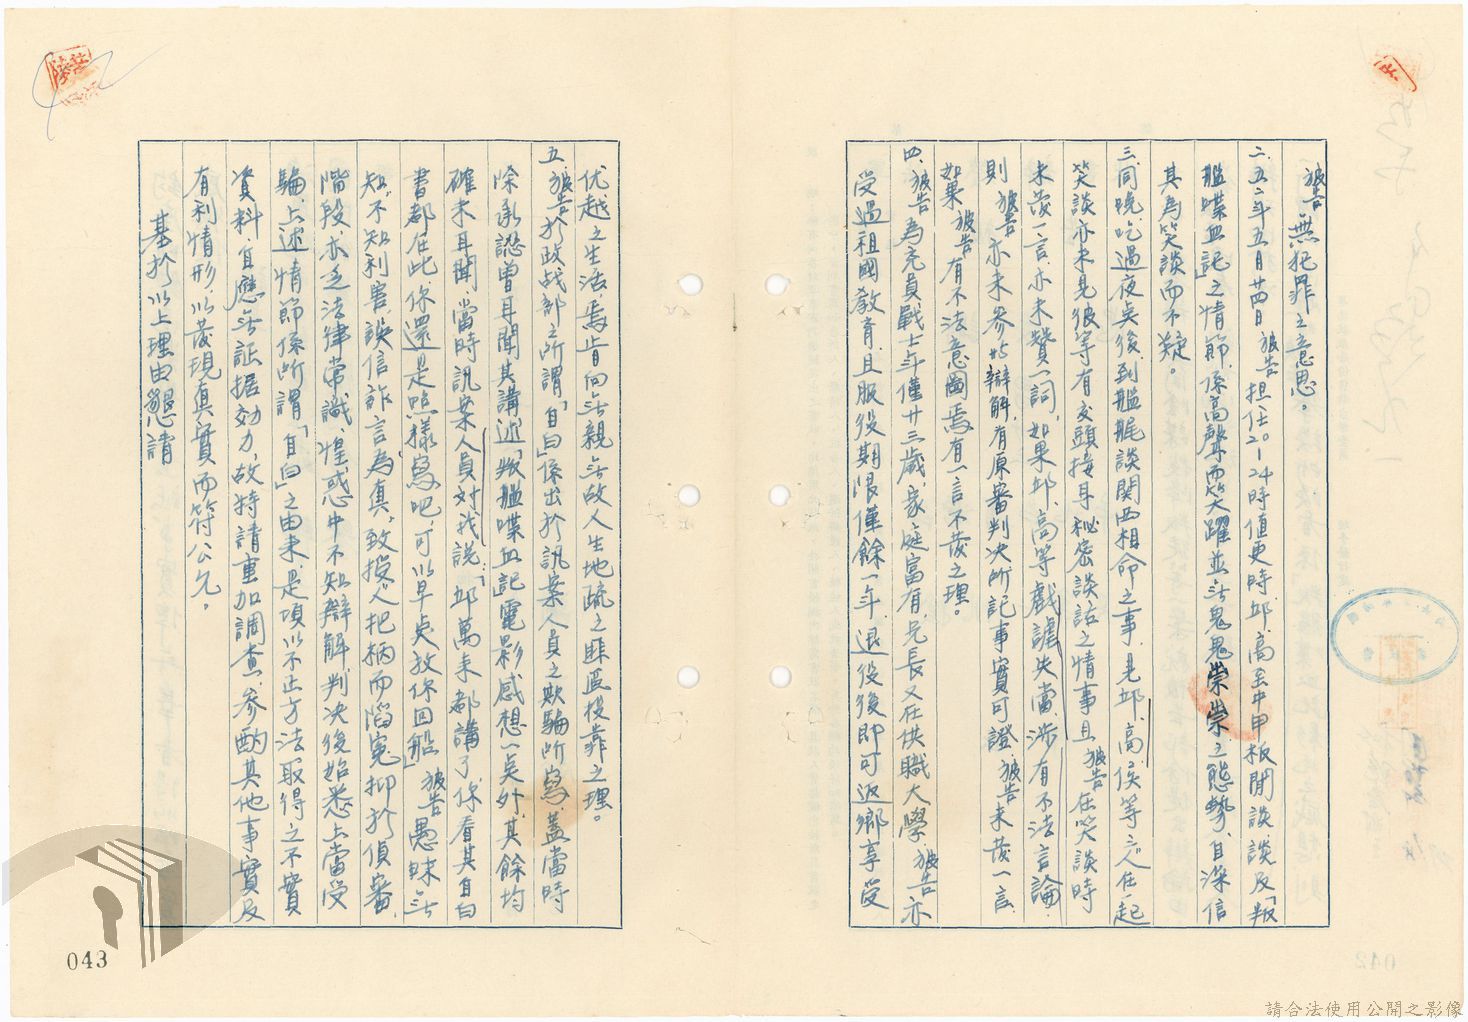 被告無犯罪之意思。
二、五二年五月廿四日被告担任20-24時值更時邱、高至中甲板閒談談及「叛
艦喋血記」之情節係高聲而笑躍並無鬼鬼祟祟之態勢、自深信
其為笑談而不疑。
三、同晚吃過夜點後到艦艉談関西相命之事、見邱、高、侯等三人在一起
笑談亦未見彼等有交頭接耳秘密談話之情事且被告在笑談時
未發一言、亦未贊一詞、如果邱、高等戲謔失當、涉有不法言論、
則被告亦未參與辯解、有原審判决所記事實可證、被告未發一言、
如果被告有不法意圖焉有一言不發之理。
四、被告為充員戰士年僅廿三歲、家庭富有、兄長又在供職大學、被告亦
受過祖國教育、且服役期限僅餘一年、退役後即可返鄉享受
优越之生活、焉肯向無親無故人生地疏之匪區投靠之理。
五、被告於政战部之所謂「自白」係出於訊案人員之欺騙所寫、蓋當時
除承認曾耳聞其講述「叛艦喋血記」電影感想一点外、其餘均
確未耳聞、當時訊案人員对我說：「邱萬來都講了、你看其自白
書都在此、你還是照樣寫吧、可以早点放你回船」被告愚昧無
知、不知利害、誤信詐言為真、致授人把柄而陷寃抑於偵審
階段亦乏法律常識、惶惑中不知辯解、判决後始悉上當受
騙、上述情節係所謂「自白」之由来、是項以不正方法取得之不實
資料自應無証据効力、故特請重加調查、參酌其他事實及
有利情形、以發現真實而符公允。
基於以上理由懇請
043
042
請合法使用公開之影像